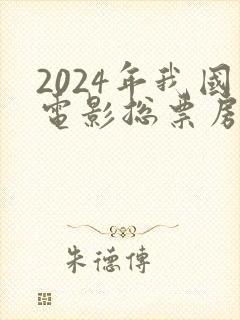 2024年我國
電影總票房
朱德傳